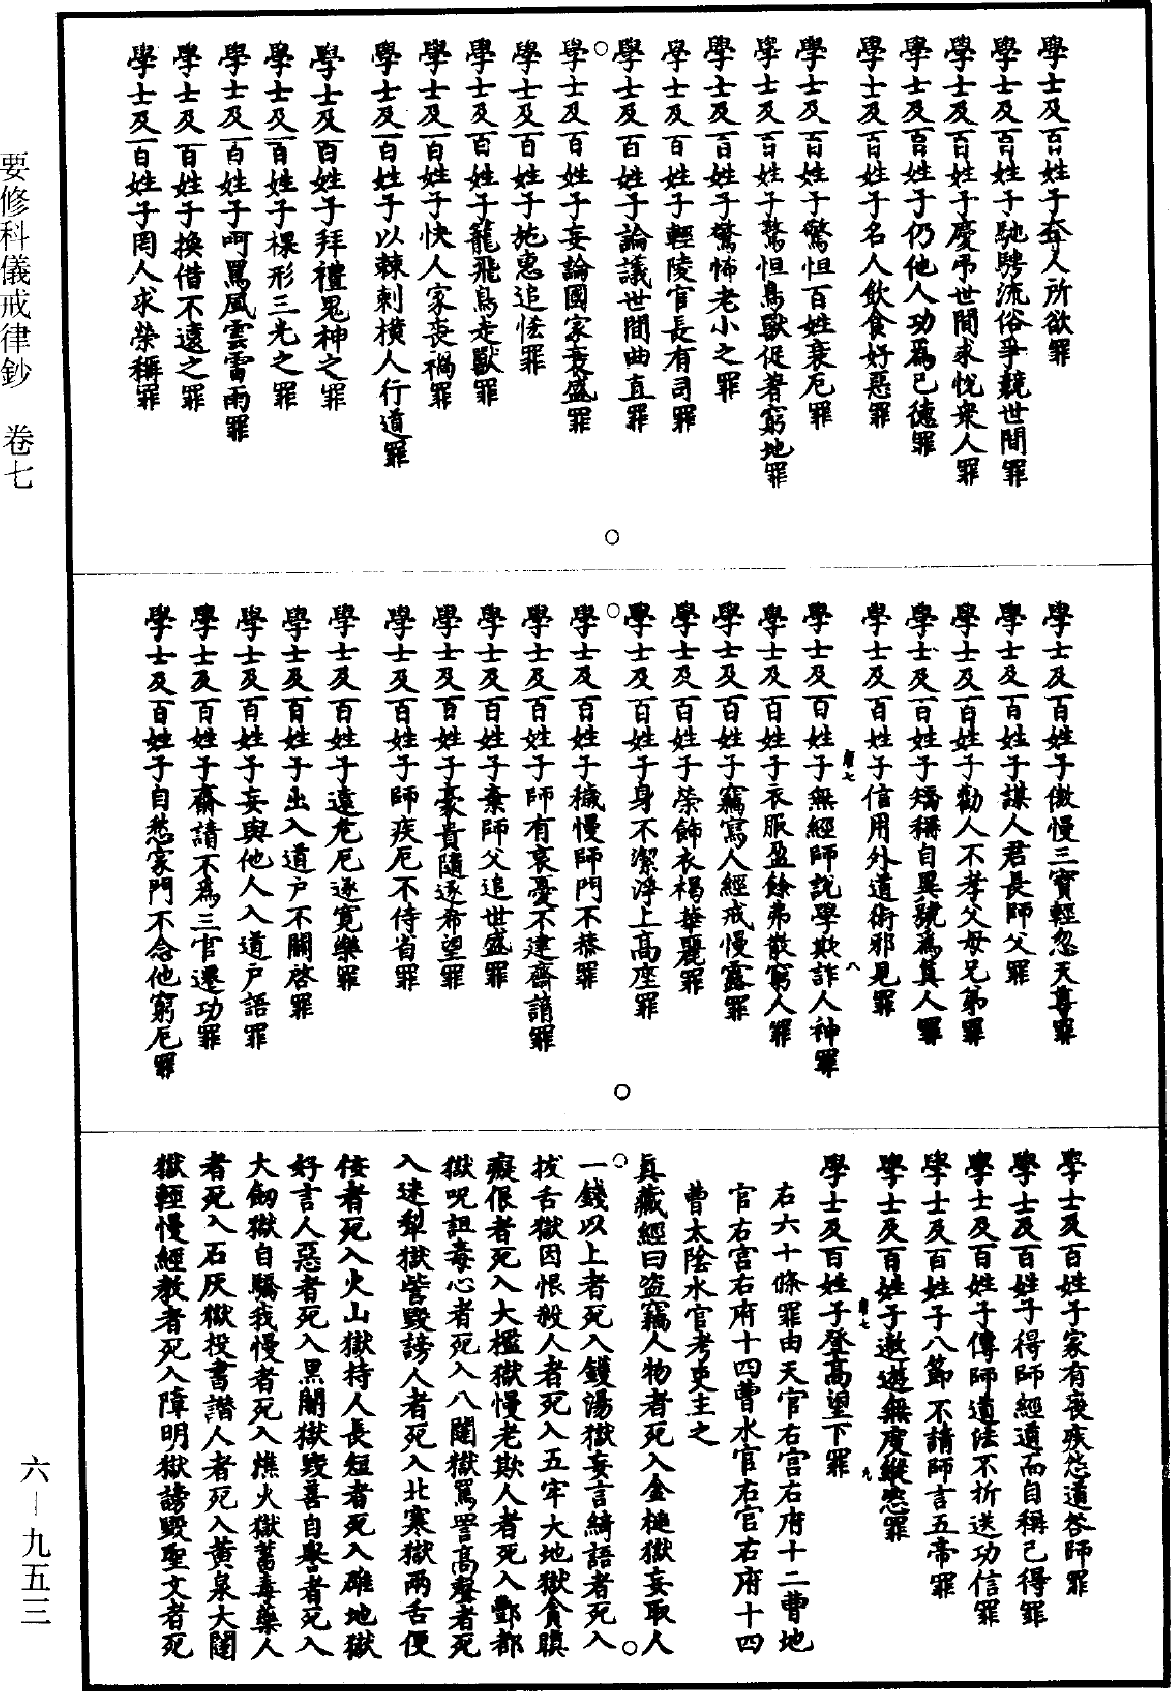 學士及百姓子奪人所欲罪
學士及百姓子馳騁流俗爭競世間罪
學士及百姓子慶弔世間求悅衆人罪
學士及百姓子仍他人功爲己德罪
學士及百姓子名人飲食好惡罪
學士及百姓子驚怛百姓衰厄罪
學士及百姓子驚怛鳥獸促著窮地罪
學士及百姓子驚怖老小之罪
學士及百姓子輕陵官長有司罪
學士及百姓子論議世間曲直罪
學士及百姓子妄論國家衰盛罪
學士及百姓子施惠追悋罪
學士及百姓子籠飛鳥走獸罪
學士及百姓子快人家喪禍罪
學士及百姓子以棘刺橫人行道罪
學士及百姓子拜禮鬼神之罪
學士及百姓子裸形三光之罪
學士及百姓子呵罵風雲雷雨罪
學士及百姓子換借不還之罪
學士及百姓子罔人求榮稱罪
學士及百姓子傲慢三寶輕忽天尊罪
學士及百姓子謀人君長師父罪
學士及百姓子勸人不孝父母兄弟罪
學士及百姓子矯稱自異號爲真人罪
學士及百姓子信用外道術邪見罪
學士及百姓子無經師說學欺詐人神罪
學士及百姓子衣服盈餘弗散窮人罪
學士及百姓子竊寫人經戒慢露罪
學士及百姓子榮飾衣褐華麗罪
學士及百姓子身不潔淨上高座罪
學士及百姓子穢慢師門不恭罪
學士及百姓子師有哀憂不建齋請罪
學士及百姓子棄師父追世盛罪
學士及百姓子豪貴隨逐希望罪
學士及百姓子師疾厄不侍省罪
學士及百姓子遠危厄逐寬樂罪
學士及百姓子出入道户不關啓罪
學士及百姓子妄與他人入道户語罪
學士及百姓子齋請不爲三官遷功罪
學士及百姓子自愁家門不念他窮厄罪
學士及百姓子家有喪疾怨道咎師罪
學士及百姓子得師經道而自稱己得罪
學士及百姓子傳師道法不折送功信罪
學士及百姓子八節不請師言五帝罪
學士及百姓子遨遊無度縱恣罪
學士及百姓子登高望下罪
右六十條罪由天官右宫右府十二曹地
官右宫右府十四曹水官右官右府十四
曹太陰水官考吏主之
真藏經曰盜竊人物者死入金槌獄妄取人
一錢以上者死入鑊湯獄妄言綺語者死入
拔舌獄因恨殺人者死入五牢大地獄貪瞋
癡佷者死入大檻獄慢老欺人者死入酆都
獄呪詛毒心者死入八闥獄罵詈高聲者死
入迷犁獄訾毀謗人者死入北寒獄兩舌便
佞者死入火山獄持人長短者死入碓地獄
好言人惡者死入黑闇獄毀善自譽者死入
大劒獄自驕我慢者死入燋火獄蓄毒藥人
者死入石灰獄投書譖人者死入黃泉大闥
獄輕慢經教者死入障明獄謗毀聖文者死
要修科儀戒律鈔 卷七
六—九五三